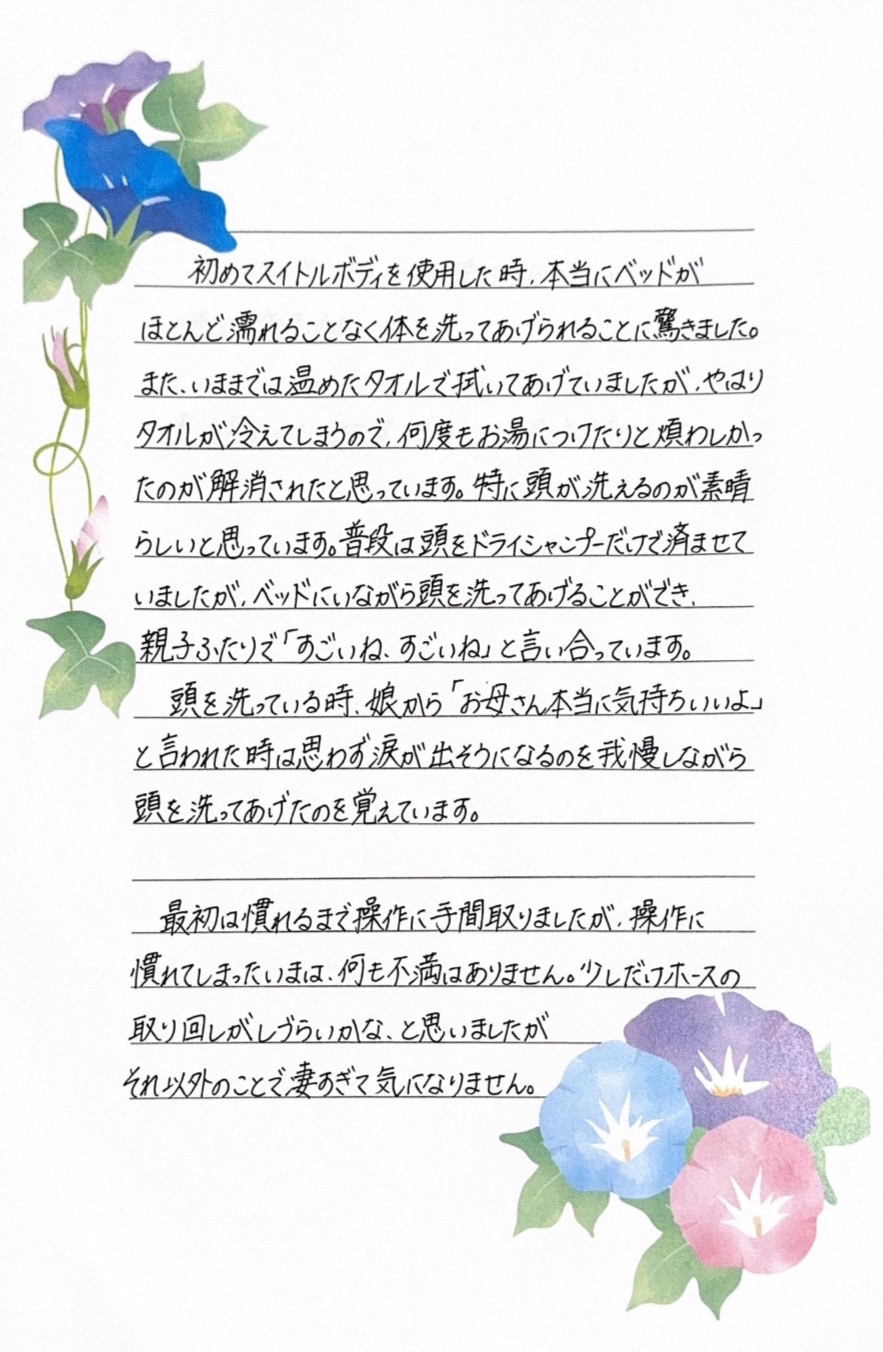 初めてスイトルボディを使用した時、本当にベッドが
ほとんど濡れることなく体を洗ってあげられることに驚きました。
また、いままでは温めたタオルで拭いてあげていましたが、やはり
タオルが冷えてしまうので、何度もお湯につけたりと煩わしかっ
たのが解消されたと思っています。特に頭が洗えるのが素晴
らしいと思っています。普段は頭をドライシャンプーだけで済ませて
いましたが、ベッドにいながら頭を洗ってあげることができ、
親子ふたりで「すごいね、すごいね」と言い合っています。
頭を洗っている時、娘から「お母さん本当に気持ちいいよ」
と言われた時は思わず涙が出そうになるのを我慢しながら
頭を洗ってあげたのを覚えています。
最初は慣れるまで操作に手間取りましたが、操作に
慣れてしまったいまは、何も不満はありません。少しだけホースの
取り回しがしづらいかな、と思いましたが
それ以外のことで凄すぎて気になりません。